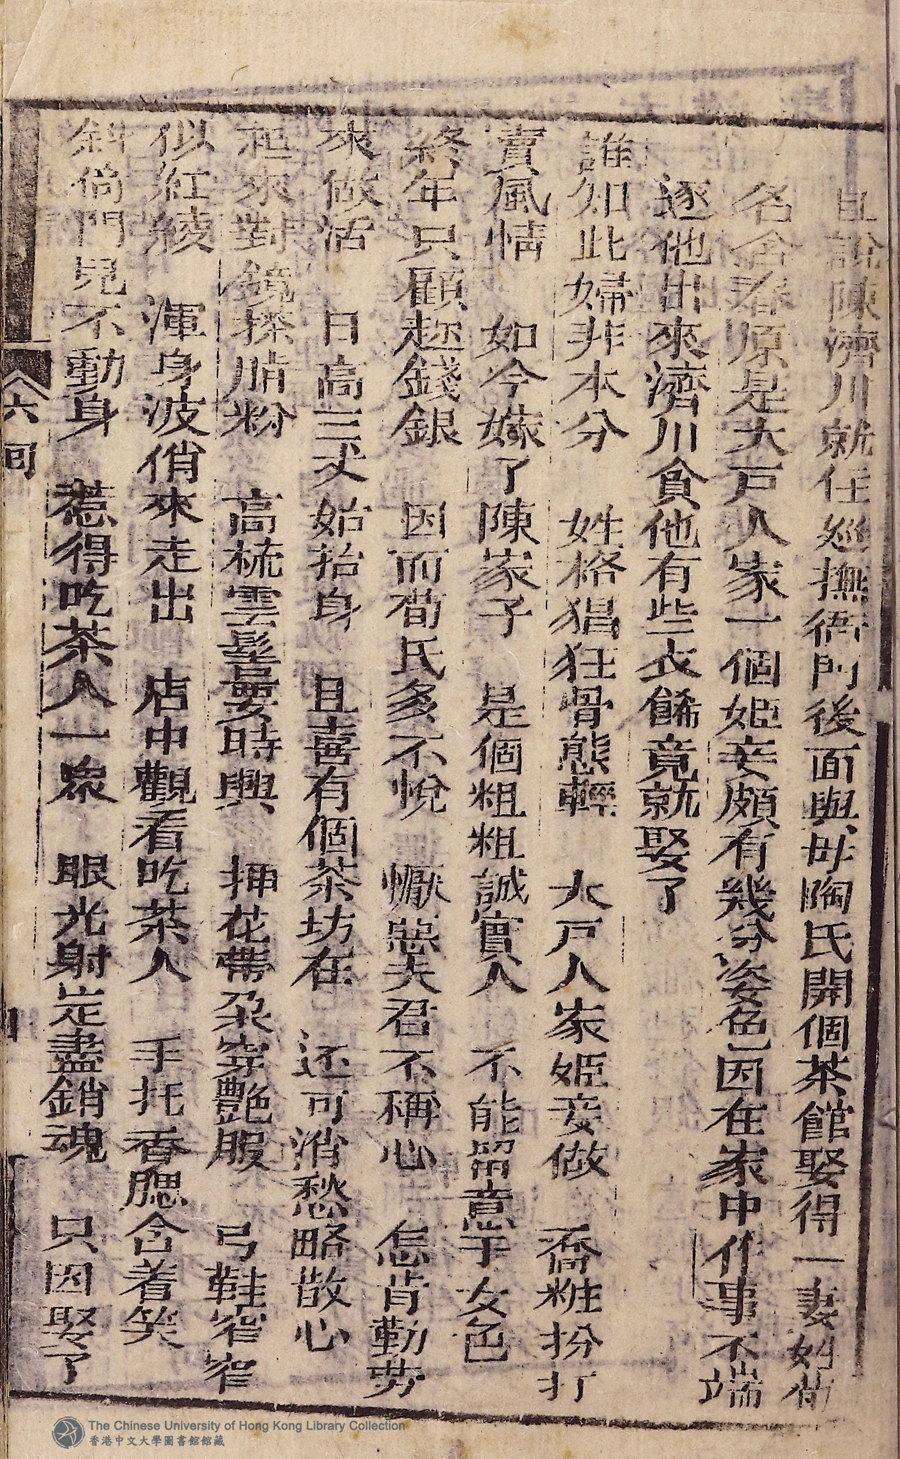 且說陳濟川就任巡撫衙門後面與母陶氏開個茶館娶得一妻姓荀
名含春原是大戶人家一個姬妾頗有幾分姿色因在家中作事不端
逐他出來濟川貪他有些衣餙竟就娶了
誰知此婦非本分 姓格猖狂骨態輕 大戶人家姬妾做 喬粧扮打
賣風情 如今嫁了陳家子 是個粗粗誠實人 不能留意于女色
終年只顧趂錢銀 因而荀氏多不悅 懨惡夫君不稱心 怎肯勤劳
來做活 日高三丈始抬身 且喜有個茶坊在 还可消愁略散心
起來對鏡搽脂粉 高梳雲髻要時興 揷花帶朶穿艷服 弓鞋窄窄
似紅綾 渾身波俏來走出 店中觀看吃茶人 手托香腮含着笑
斜倚門兒不動身 惹得吃茶人一衆 眼光射定盡銷魂 只因娶了
六囘
The Chinese University of Hong Kong Library Collection
香港中文大學圖書館館藏